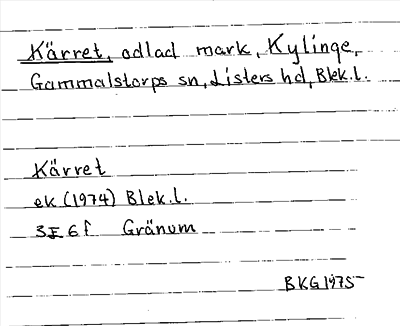 Kärret, odlad mark, Kylinge,
Gammalstorps sn, Listers hd, Blek.l.
Kärret
ek (1974) Blek.l.
3E 6f Gränum
BKG 1975